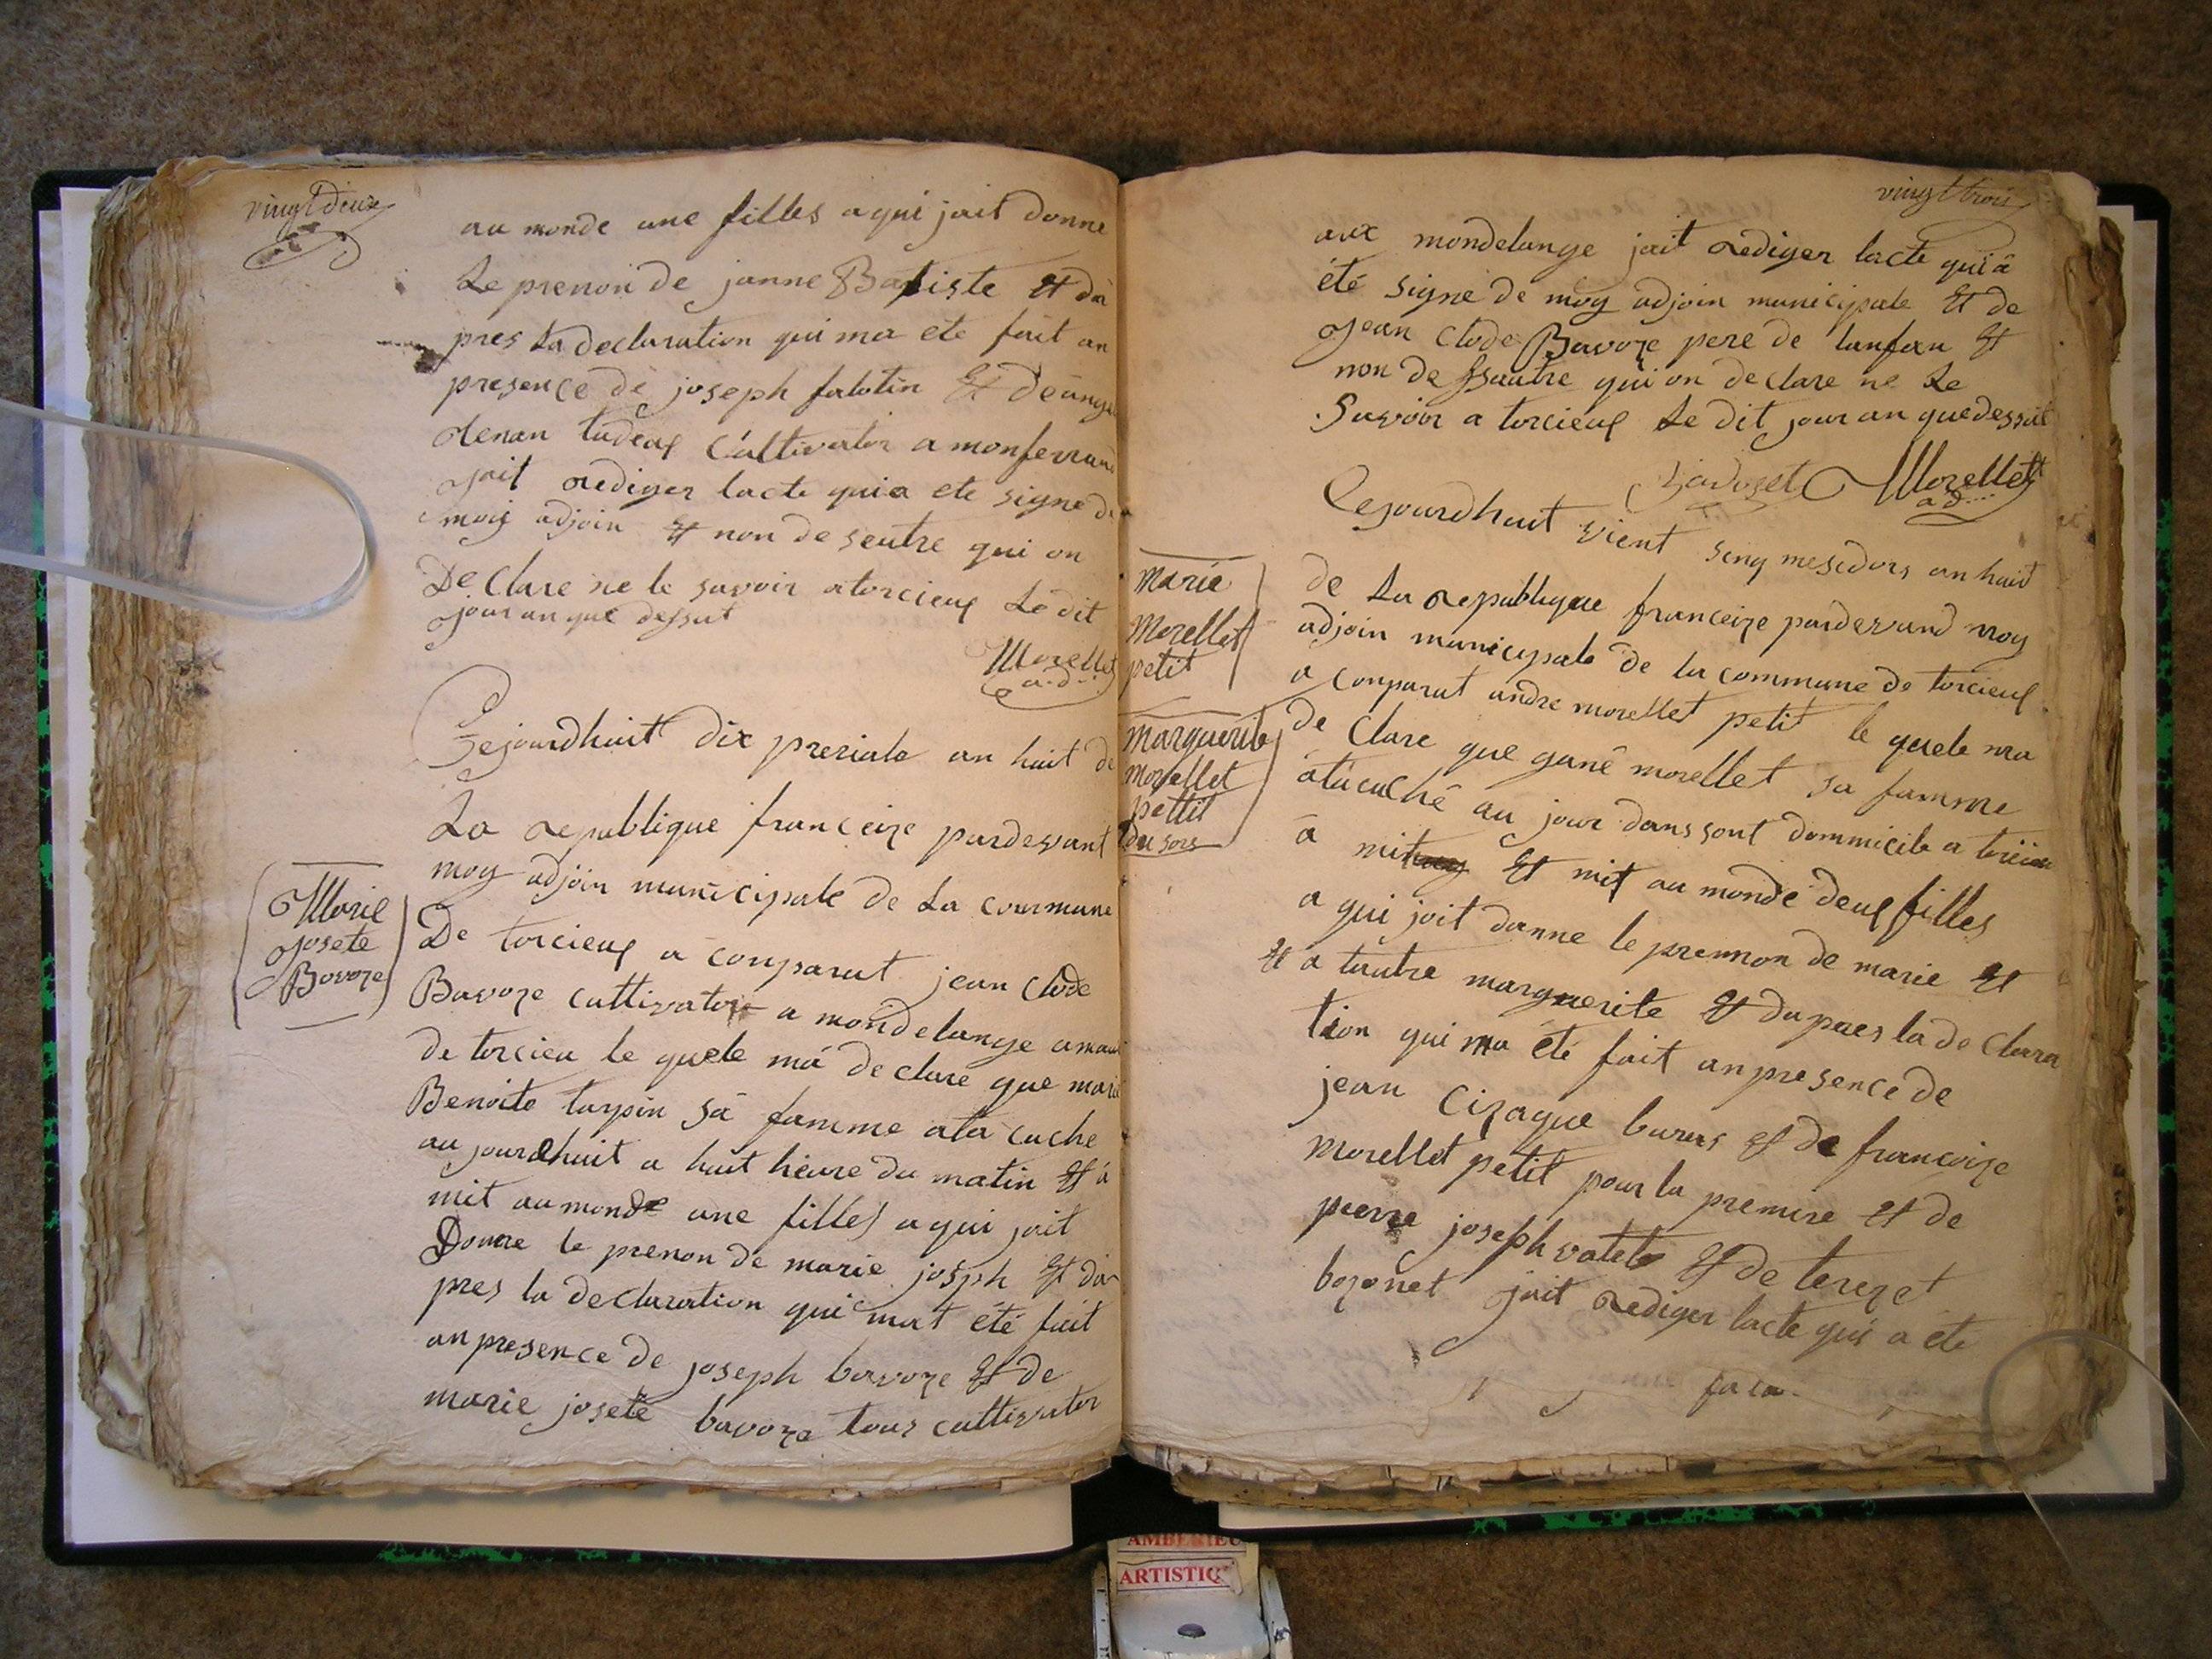 vingt deux
au monde une filles a qui jait donne
Le prenon de janne Batiste Et da
pres La declaration qui ma ete fait an
presence de joseph falotin Et de
tudeux Cultivator a monferrand
jait rediger lacte qui a ete signe de
moy adjoin Et non de seutre qui on
De Clare ne le savoir a torcieux Le dit
jour an que dessut
Morellet
ad
Cejourdhuit dix preriale an huit de
La republique franceize pardevant
moy adjoin municipale de La commune
De torcieux a conparut jean Clode
Bavoze cultivator a mondelange
de torcieu le quele ma declare que marie
Benoite tarpin sa famme ata cuche
au jourdhuit a huit heure du matin Et a
mit au monde une filles a qui jait
Donne le prenon de marie josph Et da
pres la declaration qui mat été fait
an presence de joseph bavoze Et de
marie josete bavoze tous cultivator
Marie
Josete
Bavoze
vingt trois
aux mondelange jait rediger lacte qui a
été signe de moy adjoin municipale Et de
jean Clode Bavoze pere de lanfan Et
non de sautre qui on declare ne Le
Savoir a torcieux Le dit jour an que dessut
Bavozet Morellet
ad
Cejourdhuit vient sinq mesidors an huit
de La republique franceize pardevand moy
adjoin municypale de la commune de torcieux
a conparut andre morellet petit le quele ma
de Clare que gane morellet sa famme
ata cuché au jour dans sont dommicile a torcieu
a mit Et mit au monde deux filles
a qui jait donne le prennon de marie Et
Et a lautre marguerite Et dapres la de Clara
tion qui ma été fait an presence de
jean Cizaque Et de francoize
Morellet petit pour la premire Et de
pierre joseph vatel Et de terezet
bozonet jait rediger lacte qui a été
Marie
Morellet
petit
Marguerite
Morellet
pettit
du sors
AMBERIEU
ARTISTIQ